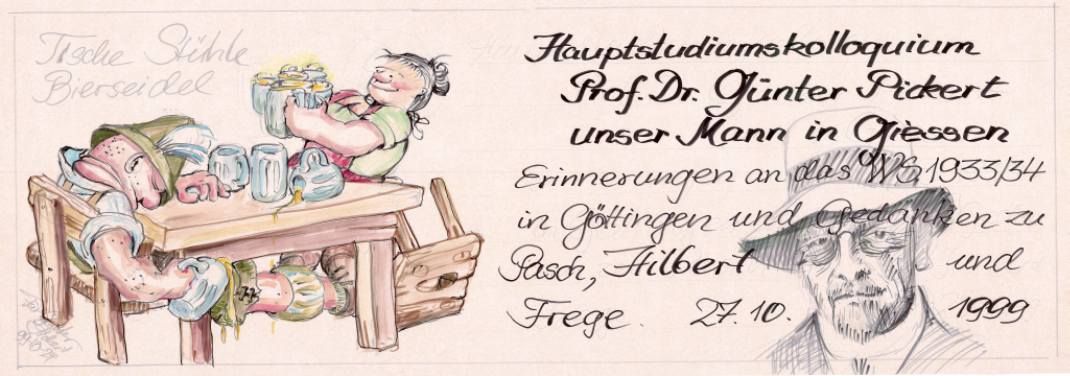 Tische Stühle
Bierseidel
Hauptstudiumskolloquium
Prof. Dr. Günter Pickert
unser Mann in Giessen
Erinnerungen an das WS 1933/34
in Göttingen und Gedanken zu
Pasch, Hilbert und
Frege. 27.10. 1999